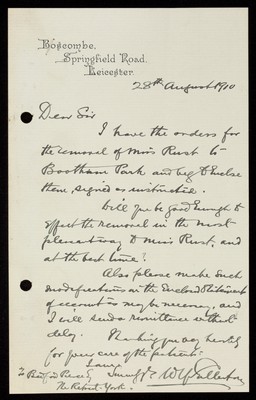 Boscombe,
Springfield Road.
Leicester.
28th August 1910
Dear Sir
I have the orders for
the removal of Miss Rust to
Bootham Park and beg to enclose
them, signed as instructed.
Will you be good enough to
effect the removal in the most
pleasant way to Miss Rust, and
at the best time?
Also please make such
modifications in the Enclosed Statement
of account as may be necessary, and
I will send a remittance without
delay. Thanking you very heartily
for your care of the patient.
I am
Yours
To Bedford Pierce Esq
The Retreat. York.